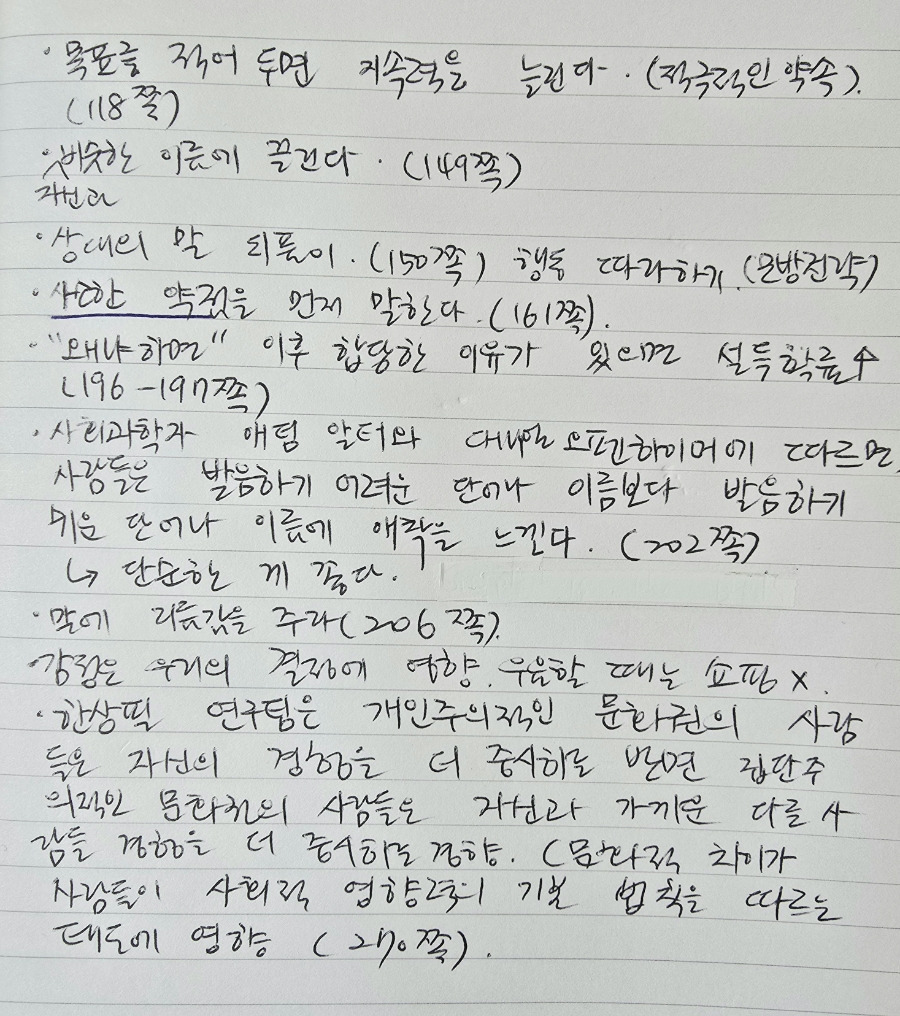 · 목표를 적어 두면 지속력을 늘린다. (적극적인 약속).
(118쪽)
· 비슷한 이름에 끌린다. (149쪽)
자신과
· 상대의 말 되풀이. (150쪽) 행동 따라하기. (모방전략)
· 사소한 약점을 먼저 말한다. (161쪽).
· "왜냐하면" 이후 합당한 이유가 있으면 설득확률↑
(196-197쪽)
· 사회과학자 애덤 알터와 대니얼 오펜하이머에 따르면,
사람들은 발음하기 어려운 단어나 이름보다 발음하기
쉬운 단어나 이름에 애착을 느낀다. (202쪽)
↳ 단순한 게 좋다.
· 말에 리듬감을 주라(206쪽).
· 감정은 우리의 결정에 영향. 우울할 때는 쇼핑 x.
· 한상필 연구팀은 개인주의적인 문화권의 사람
들은 자신의 경험을 더 중시하는 반면 집단주
의적인 문화권의 사람들은 자신과 가까운 다른 사
람들 경험을 더 중시하는 경향. (문화적 차이가
사람들이 사회적 영향력의 기본 법칙을 따르는
태도에 영향 (270쪽).